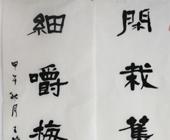 閑栽
細嚼梅
甲午秋月王